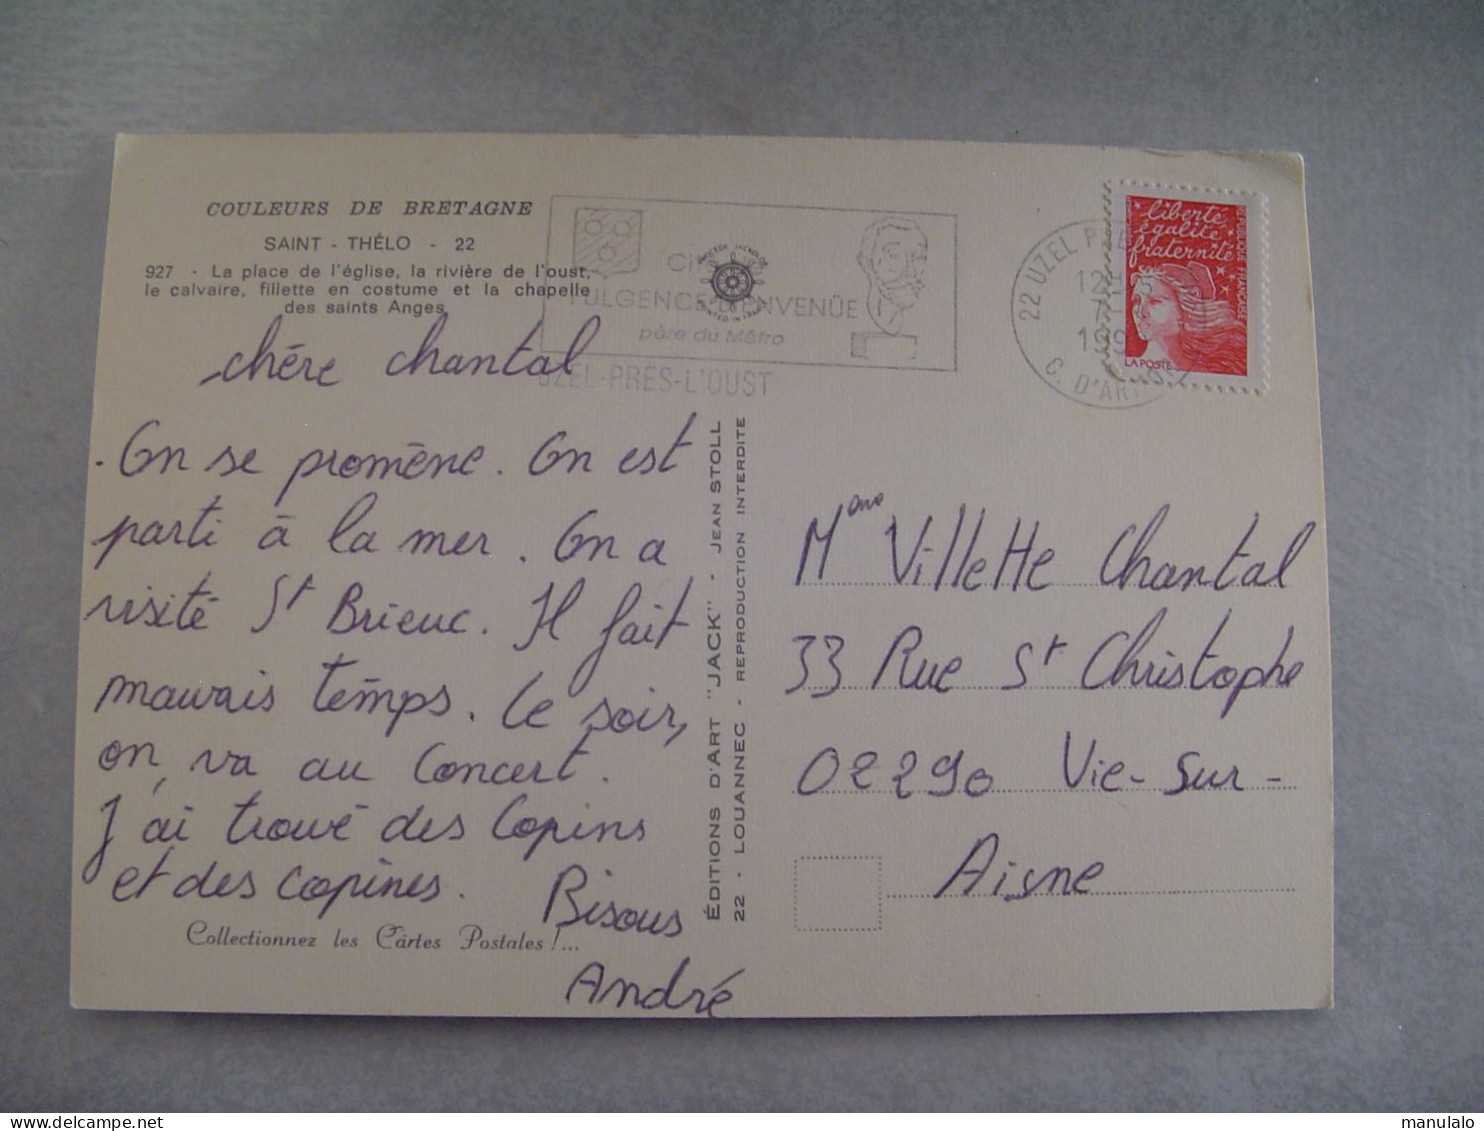 COULEURS DE BRETAGNE
SAINT - THÉLO - 22
927 - La place de l'église, la rivière de l'oust,
le calvaire, fillette en costume et la chapelle
des saints Anges
FULGENCE BIENVENÜE
père du Métro
UZEL-PRÈS-L'OUST
22 UZEL
C. D'ARMOR
liberté
égalité
fraternité
RÉPUBLIQUE FRANÇAISE
LA POSTE
chére chantal
. On se promène. On est
parti à la mer. On a
visité St Brieuc. Il fait
mauvais temps. Le soir,
on va au Concert.
J'ai trouvé des Copins
et des copines.
Bisous
André
Collectionnez les Cartes Postales !...
ÉDITIONS D'ART "JACK" - JEAN STOLL
22 - LOUANNEC - REPRODUCTION INTERDITE
Mme Villette Chantal
33 Rue St Christophe
02290 Vie-Sur-
Aisne
www.delcampe.net
manulalo